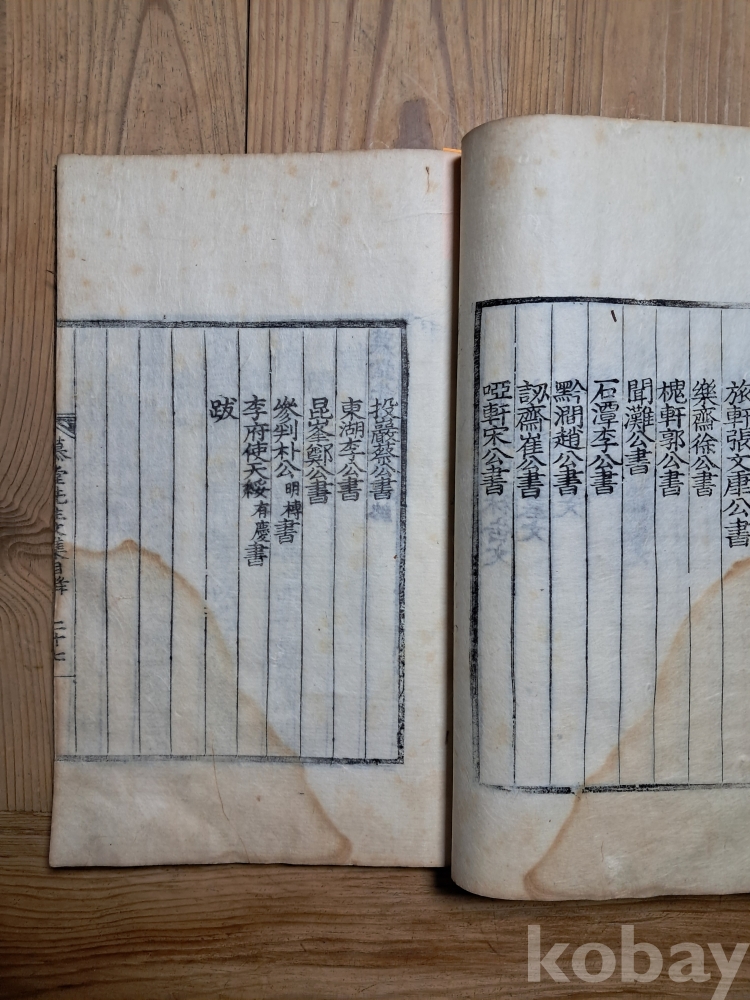 旅軒張文康公書
樂齋徐公書
槐軒郭公書
聞灘公書
石潭李公書
黔澗趙公書
訒齋崔公書
啞軒宋公書
投巖蔡公書
東湖李公書
昆峯鄭公書
參判朴公明榑書
李府使天綏有慶書
跋
慕堂先生文集目錄 二十七
kobay